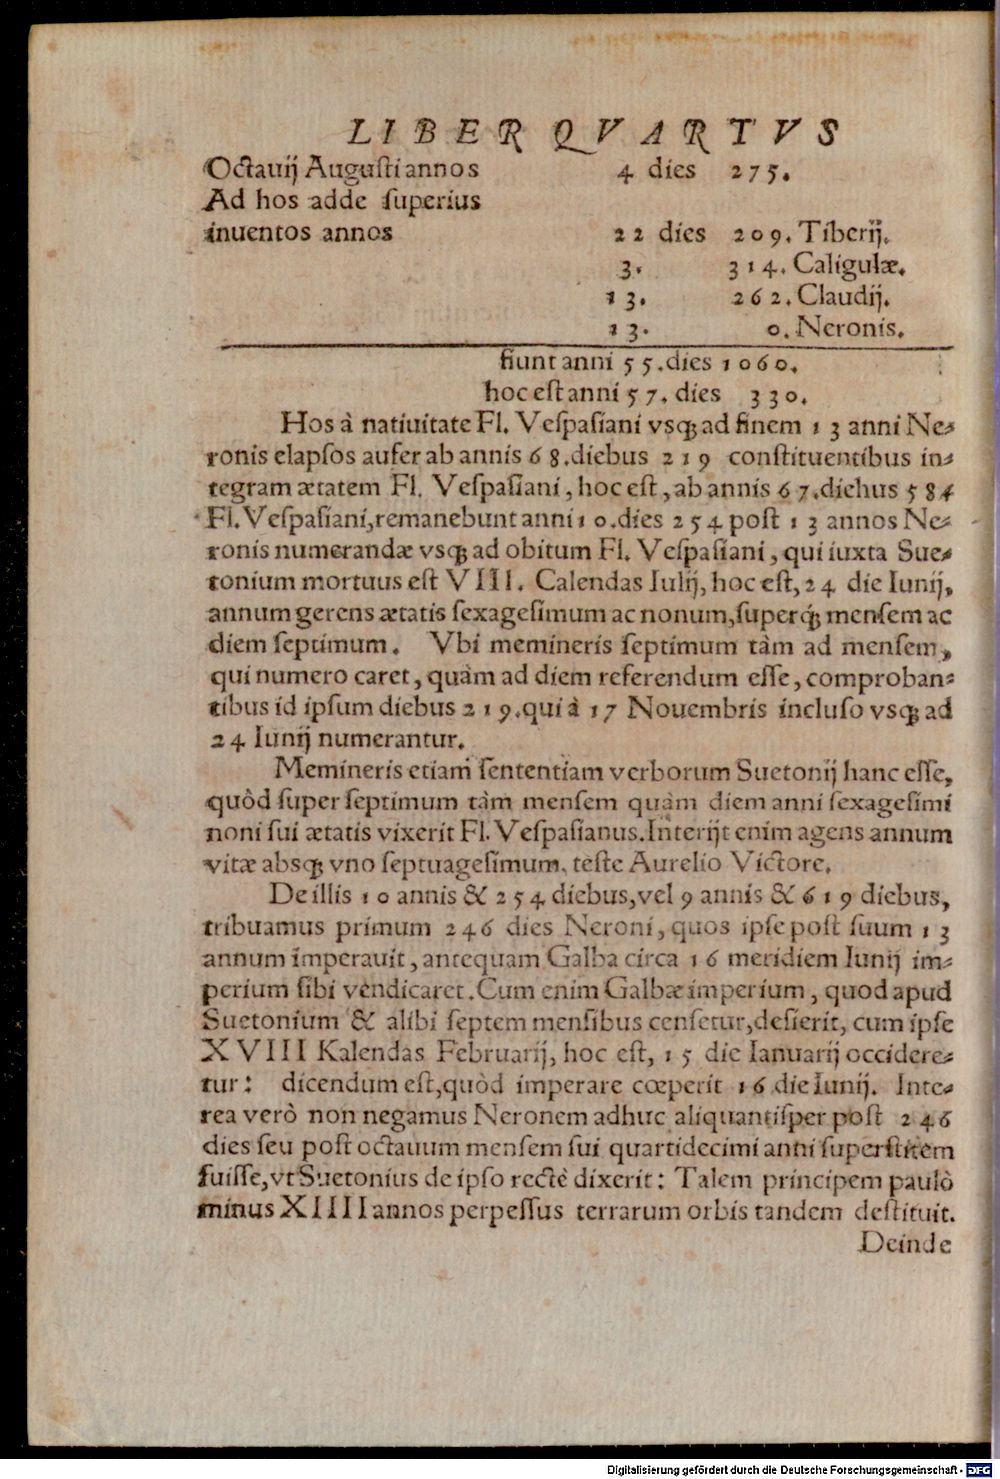 LIBER QVARTVS
Octauij Augusti annos 4 dies 275.
Ad hos adde ſuperius
inuentos annos 22 dies 209. Tiberij.
3. 314. Caligulæ.
13. 262. Claudij.
13. 0. Neronis.
fiunt anni 55. dies 1060.
hoc eſt anni 57. dies 330.
Hos à natiuitate Fl. Veſpaſiani vsq; ad finem 13 anni Ne-
ronis elapſos aufer ab annis 68. diebus 219 conſtituentibus in-
tegram ætatem Fl. Veſpaſiani, hoc eſt, ab annis 67. diebus 584
Fl. Veſpaſiani, remanebunt anni 10. dies 254 poſt 13 annos Ne-
ronis numerandæ vsq; ad obitum Fl. Veſpaſiani, qui iuxta Sue-
tonium mortuus eſt VIII. Calendas Iulij, hoc eſt, 24 die Iunij,
annum gerens ætatis ſexageſimum ac nonum, ſuperq́; menſem ac
diem ſeptimum. Vbi memineris ſeptimum tàm ad menſem,
qui numero caret, quàm ad diem referendum eſſe, comproban-
tibus id ipſum diebus 219. qui à 17 Nouembris incluſo vsq; ad
24 Iunij numerantur.
Memineris etiam ſententiam verborum Suetonij hanc eſſe,
quòd ſuper ſeptimum tàm menſem quàm diem anni ſexageſimi
noni ſui ætatis vixerit Fl. Veſpaſianus. Interijt enim agens annum
vitæ absq; vno ſeptuageſimum, teſte Aurelio Victore.
De illis 10 annis & 254 diebus, vel 9 annis & 619 diebus,
tribuamus primum 246 dies Neroni, quos ipſe poſt ſuum 13
annum imperauit, antequam Galba circa 16 meridiem Iunij im-
perium ſibi vendicaret. Cum enim Galbæ imperium, quod apud
Suetonium & alibi ſeptem menſibus cenſetur, deſierit, cum ipſe
XVIII Kalendas Februarij, hoc eſt, 15 die Ianuarij occidere-
tur: dicendum eſt, quòd imperare cœperit 16 die Iunij. Inte-
rea verò non negamus Neronem adhuc aliquantiſper poſt 246
dies ſeu poſt octauum menſem ſui quartidecimi anni ſuperſtitem
fuiſſe, vt Suetonius de ipſo rectè dixerit: Talem principem paulò
minus XIIII annos perpeſſus terrarum orbis tandem deſtituit.
Deinde
Digitalisierung gefördert durch die Deutsche Forschungsgemeinschaft - DFG